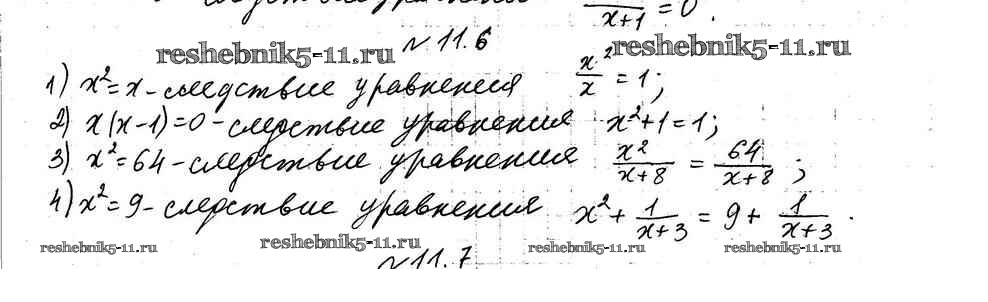 x+1 = 0.
№ 11.6
reshebnik5-11.ru reshebnik5-11.ru
1) x² = x - следствие уравнения x²/x = 1;
2) x(x-1)=0 - следствие уравнения x²+1=1;
3) x² = 64 - следствие уравнения x²/(x+8) = 64/(x+8);
4) x² = 9 - следствие уравнения x² + 1/(x+3) = 9 + 1/(x+3).
reshebnik5-11.ru reshebnik5-11.ru reshebnik5-11.ru reshebnik5-11.ru
№ 11.7